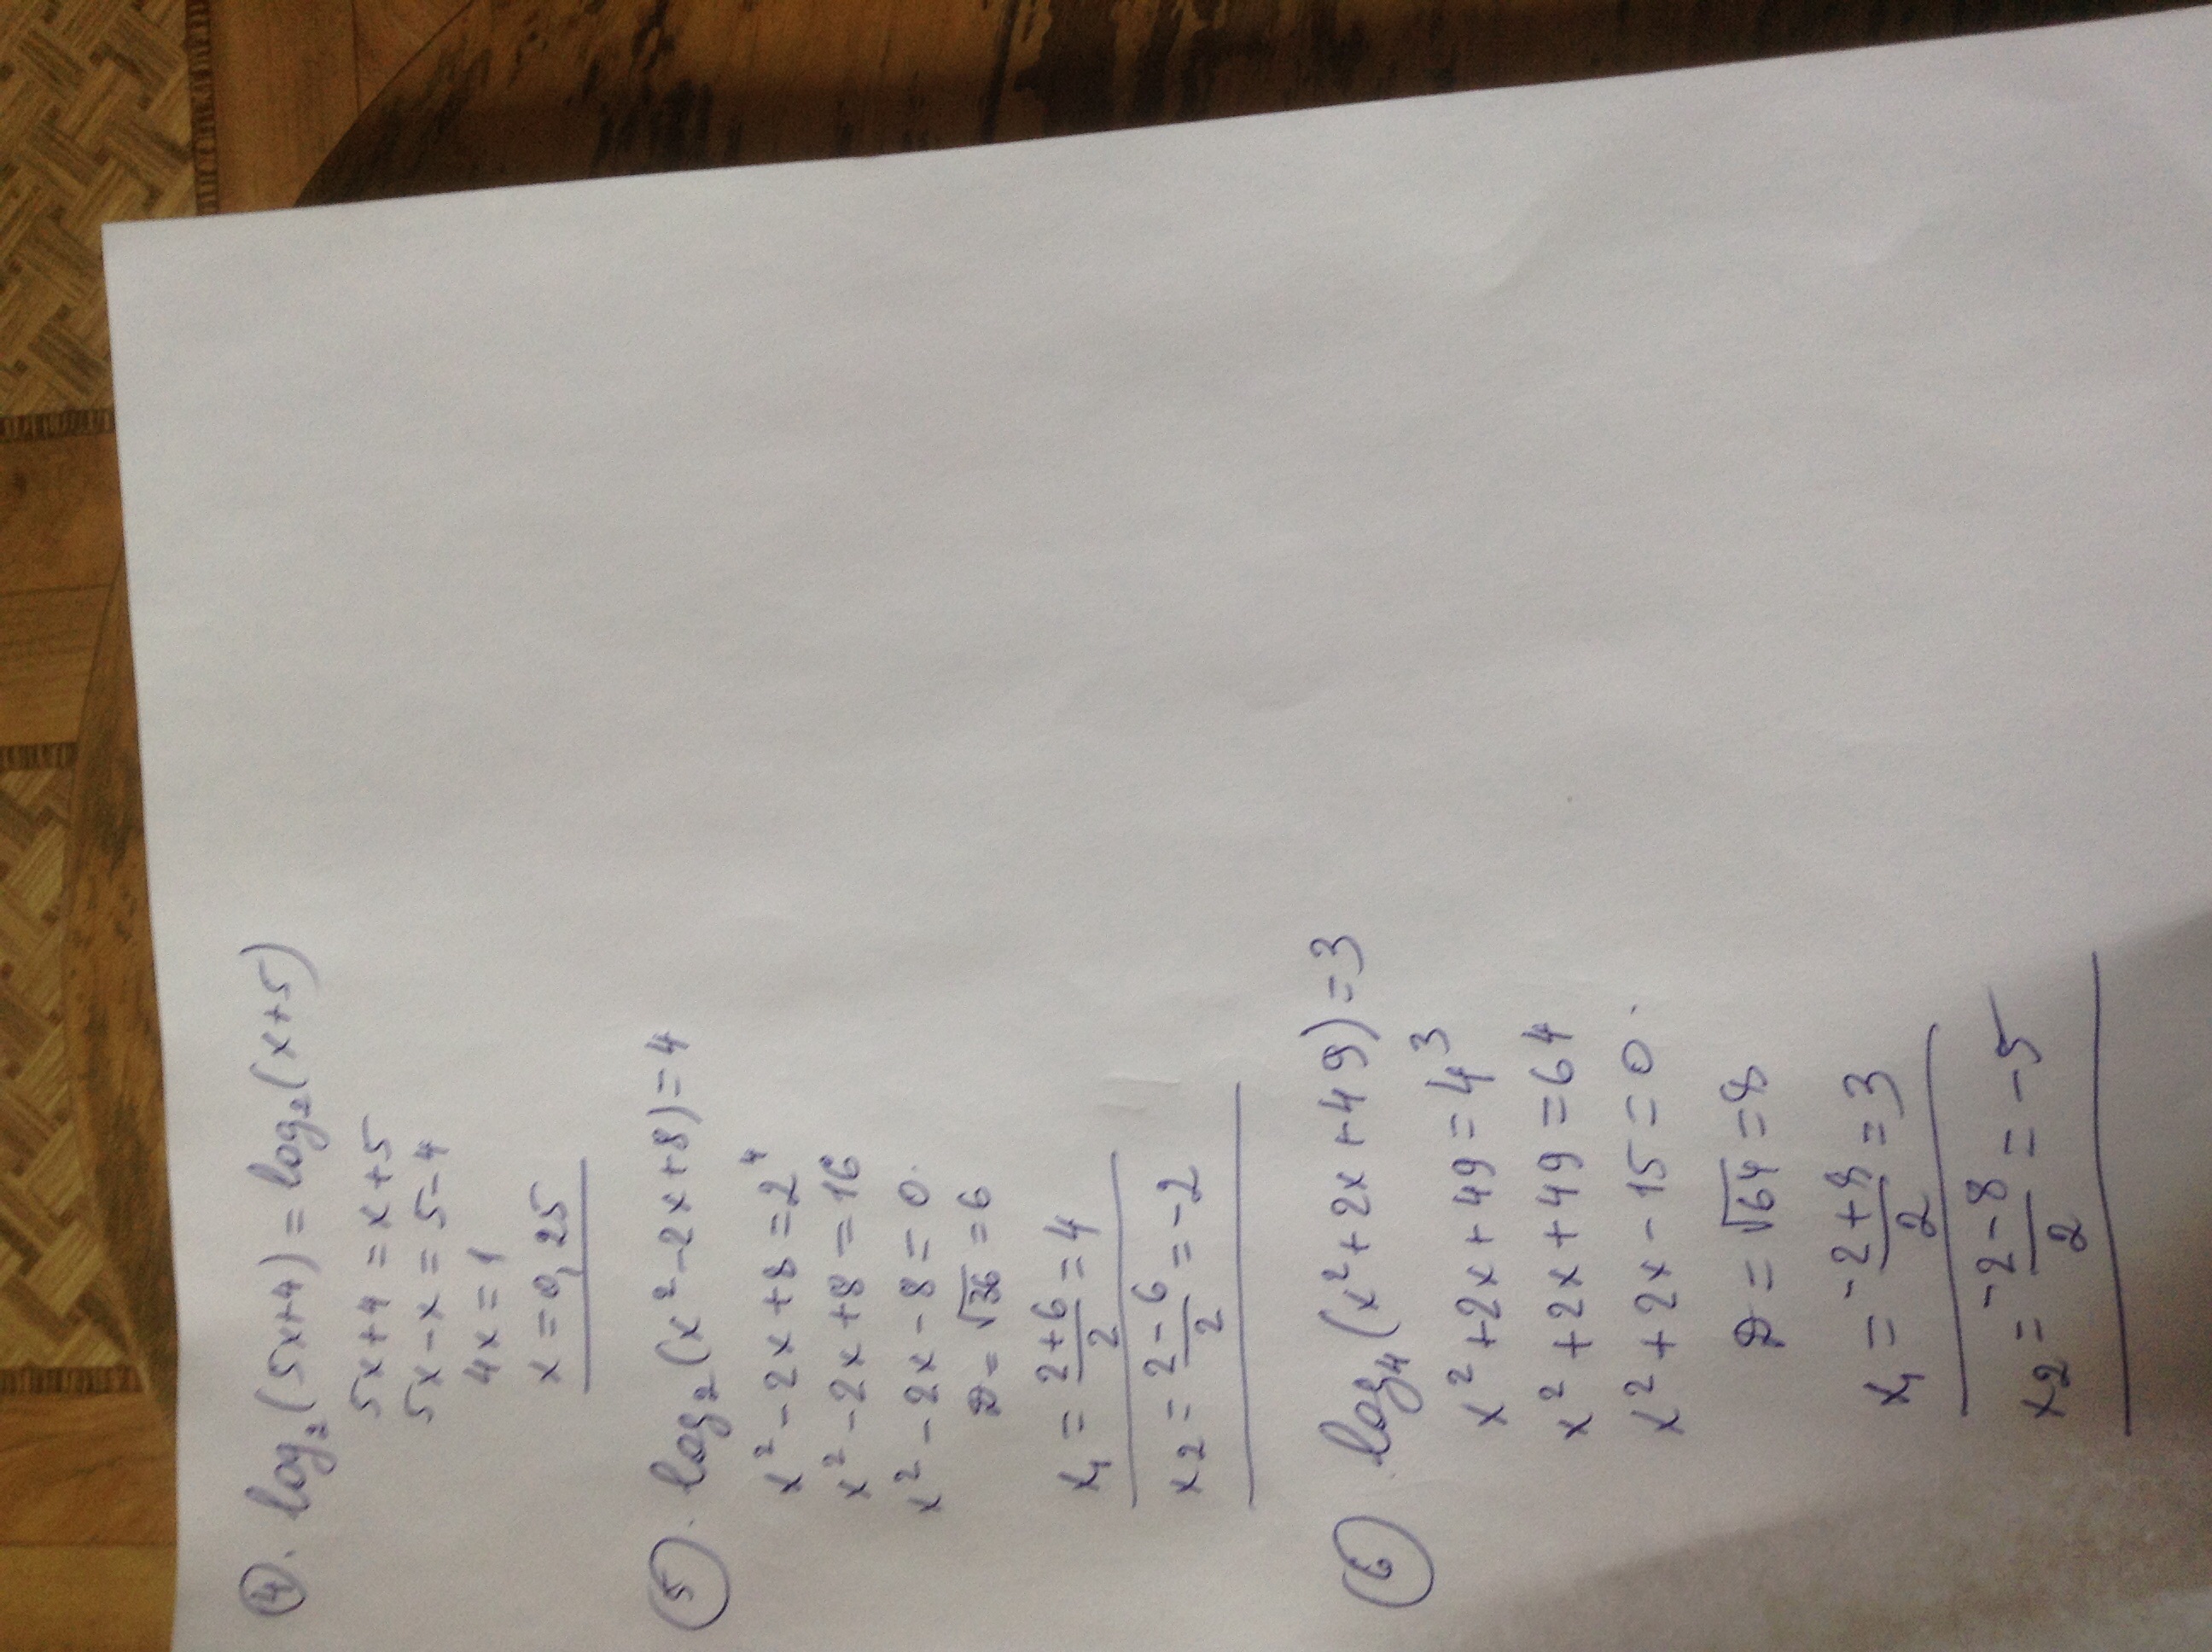 ④. log₂(5x+4) = log₂(x+5)
5x+4 = x+5
5x-x = 5-4
4x = 1
x = 0,25
⑤. log₂(x²-2x+8) = 4
x²-2x+8 = 2⁴
x²-2x+8 = 16
x²-2x-8 = 0.
D = √36 = 6
x₁ = (2+6)/2 = 4
x₂ = (2-6)/2 = -2
⑥. log₄(x²+2x+49) = 3
x²+2x+49 = 4³
x²+2x+49 = 64
x²+2x-15 = 0.
D = √64 = 8
x₁ = (-2+8)/2 = 3
x₂ = (-2-8)/2 = -5